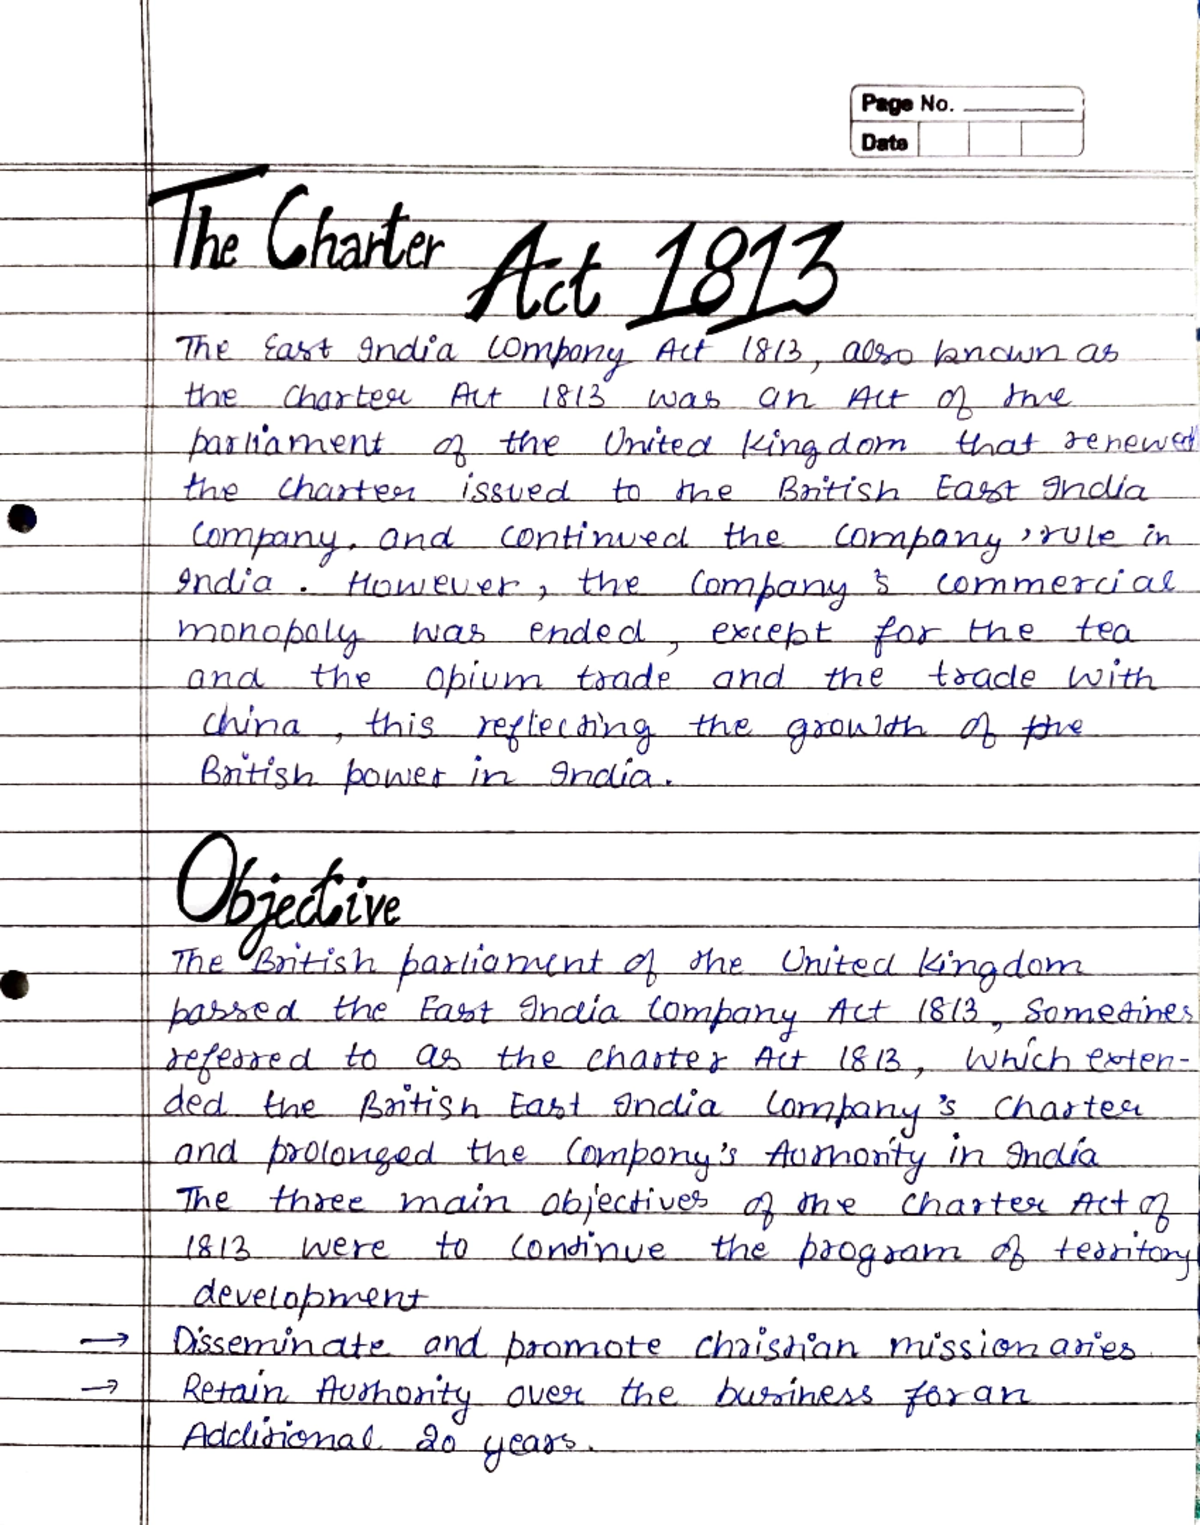 Page No.
Date
The Charter Act 1813
The East India Company Act 1813, also known as
the Charter Act 1813 was an Act of the
parliament of the United Kingdom that renewed
the Charter issued to the British East India
Company. and continued the Company 'rule in
India. However, the Company's commercial
monopoly was ended, except for the tea
and the Opium trade and the trade with
China, this reflecting the growth of the
British power in India.
Objective
The British parliament of the United Kingdom
passed the East India Company Act 1813, Sometines
referred to as the charter Act 1813, Which exten-
ded the British East India Company's Charter
and prolonged the Company's Authority in India
The three main objectives of the Charter Act of
1813 were to Continue the program of territory
development
→ Disseminate and promote christian missionaries
→ Retain Authority over the business for an
Additional 20 years.